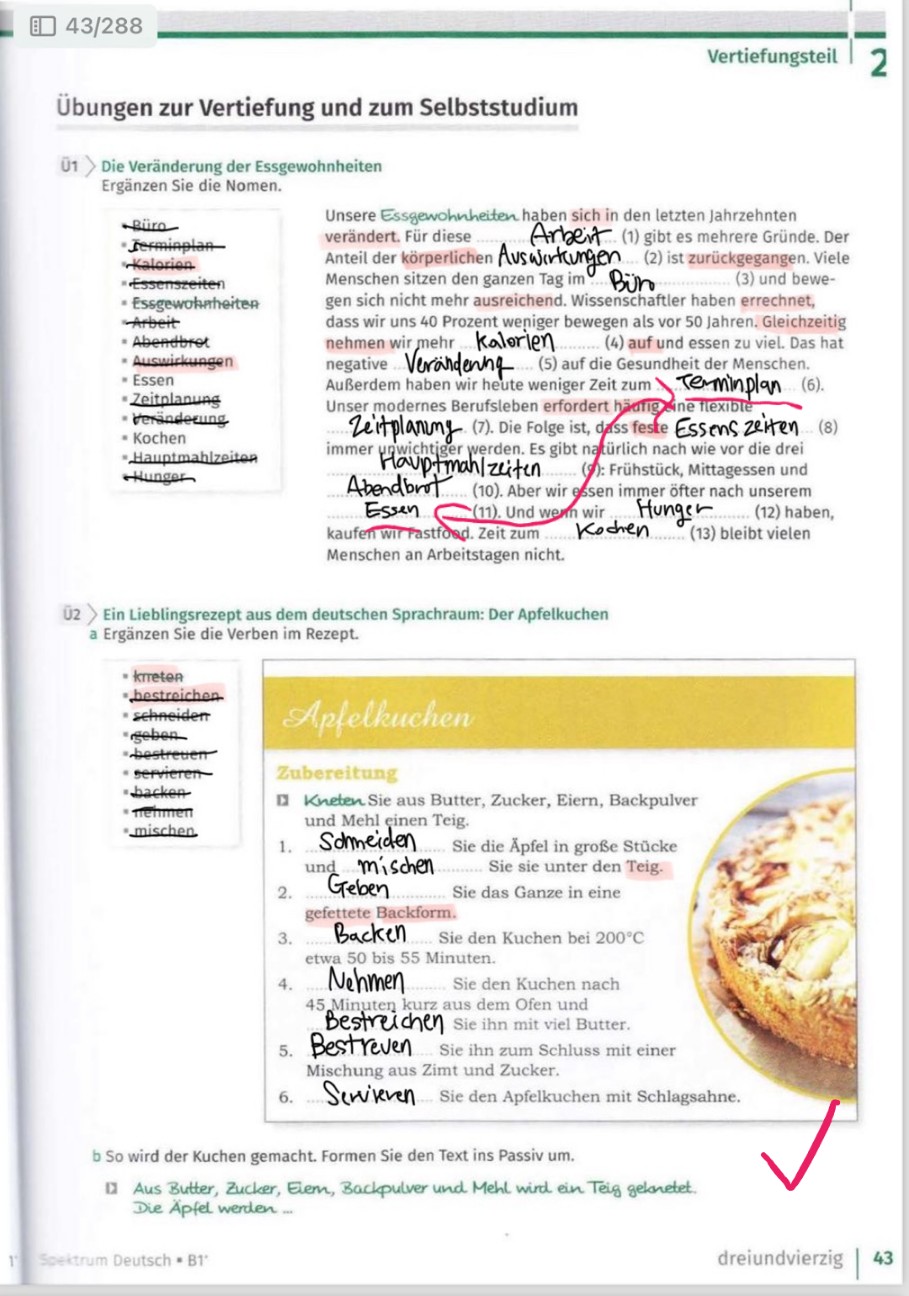 43/288
Vertiefungsteil 2
Übungen zur Vertiefung und zum Selbststudium
Ü1 Die Veränderung der Essgewohnheiten
Ergänzen Sie die Nomen.
▪ Büro
▪ Terminplan
▪ Kalorien
▪ Essenszeiten
▪ Essgewohnheiten
▪ Arbeit
▪ Abendbrot
▪ Auswirkungen
▪ Essen
▪ Zeitplanung
▪ Veränderung
▪ Kochen
▪ Hauptmahlzeiten
▪ Hunger
Unsere Essgewohnheiten haben sich in den letzten Jahrzehnten
verändert. Für diese Arbeit (1) gibt es mehrere Gründe. Der
Anteil der körperlichen Auswirkungen (2) ist zurückgegangen. Viele
Menschen sitzen den ganzen Tag im Büro (3) und bewe-
gen sich nicht mehr ausreichend. Wissenschaftler haben errechnet,
dass wir uns 40 Prozent weniger bewegen als vor 50 Jahren. Gleichzeitig
nehmen wir mehr Kalorien (4) auf und essen zu viel. Das hat
negative Veränderung (5) auf die Gesundheit der Menschen.
Außerdem haben wir heute weniger Zeit zum Terminplan (6).
Unser modernes Berufsleben erfordert häufig eine flexible
Zeitplanung (7). Die Folge ist, dass feste Essenszeiten (8)
immer unwichtiger werden. Es gibt natürlich nach wie vor die drei
Hauptmahlzeiten (9): Frühstück, Mittagessen und
Abendbrot (10). Aber wir essen immer öfter nach unserem
Essen (11). Und wenn wir Hunger (12) haben,
kaufen wir Fastfood. Zeit zum Kochen (13) bleibt vielen
Menschen an Arbeitstagen nicht.
Ü2 Ein Lieblingsrezept aus dem deutschen Sprachraum: Der Apfelkuchen
a Ergänzen Sie die Verben im Rezept.
▪ kneten
▪ bestreichen
▪ schneiden
▪ geben
▪ bestreuen
▪ servieren
▪ backen
▪ nehmen
▪ mischen
Apfelkuchen
Zubereitung
Kneten Sie aus Butter, Zucker, Eiern, Backpulver
und Mehl einen Teig.
1. Schneiden Sie die Äpfel in große Stücke
und mischen Sie sie unter den Teig.
2. Geben Sie das Ganze in eine
gefettete Backform.
3. Backen Sie den Kuchen bei 200°C
etwa 50 bis 55 Minuten.
4. Nehmen Sie den Kuchen nach
45 Minuten kurz aus dem Ofen und
Bestreichen Sie ihn mit viel Butter.
5. Bestreuen Sie ihn zum Schluss mit einer
Mischung aus Zimt und Zucker.
6. Servieren Sie den Apfelkuchen mit Schlagsahne.
b So wird der Kuchen gemacht. Formen Sie den Text ins Passiv um.
Aus Butter, Zucker, Eiern, Backpulver und Mehl wird ein Teig geknetet.
Die Äpfel werden ...
Spektrum Deutsch ▪ B1⁺ dreiundvierzig 43